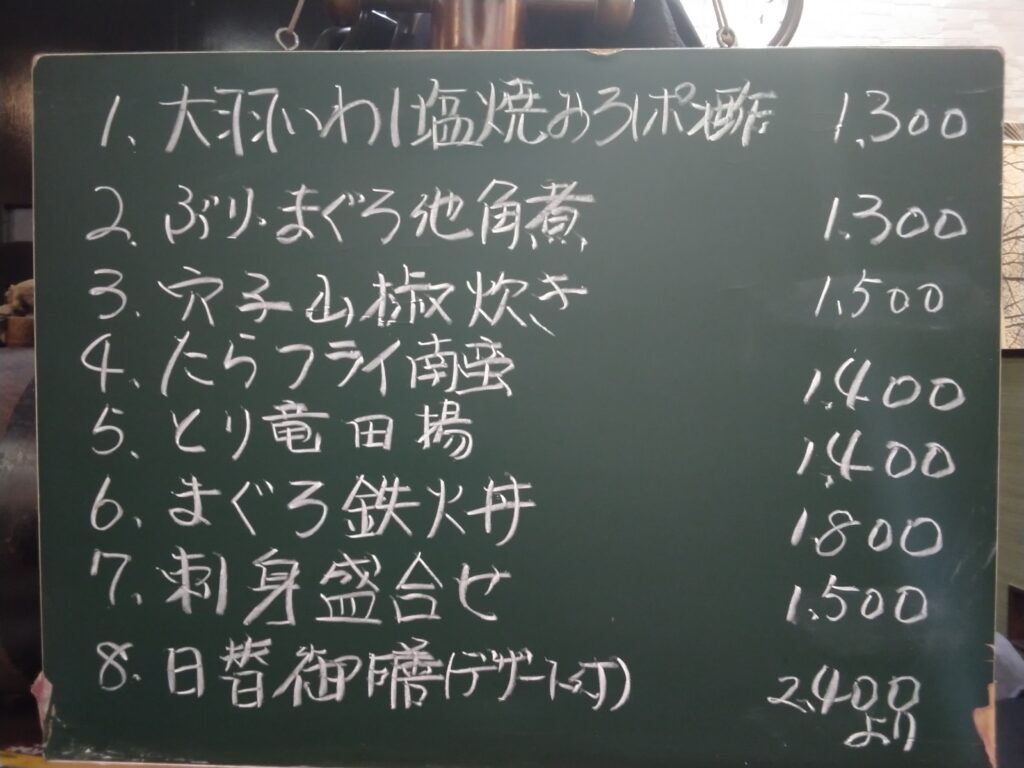 1. 大羽いわし塩焼おろしポン酢 1,300
2. ぶり・まぐろ他角煮 1.300
3. 穴子山椒炊き 1,500
4. たらフライ南蛮 1,400
5. とり竜田揚 1,400
6. まぐろ鉄火丼 1,800
7. 刺身盛合せ 1,500
8. 日替御膳(デザート付) 2,400
より